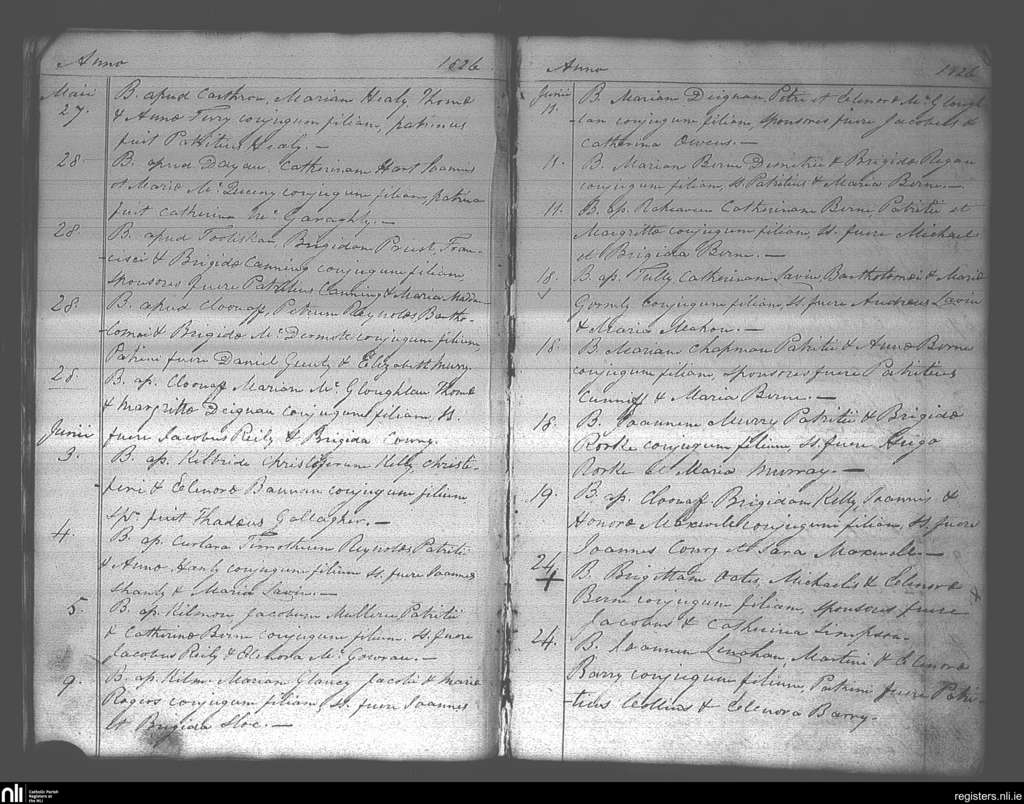 Anno 1826
Maii
27. B. apud Carthron, Marian Healy, Thomæ
& Annæ Furry conjugum filiam, patrinus
fuit Patritius Healy. —
28 B. apud Catherinam Hart Joannis
et Mariæ Mc Queeny conjugum filiam, patrina
fuit Catherina Mc Garaghy. —
28 B. apud Tooliskan, Brigidam Priest, Fran-
cisci & Brigidæ Canning conjugum filiam
sponsores fuere Patritius Canning & Maria
28. B. apud Cloonaff, Petrum Reynolds, Bartho-
-lomei & Brigidæ Mc Dermott conjugum filium,
Patrini fuere Daniel & Elizabeth Murry.
28. B. ap. Cloonaff Marian Mc Gloughlan Thomæ
& Margrittæ Deignan conjugum filiam, B.
fuere Jacobus Reily & Brigida Conry.
Junii
3. B. ap. Kilbride Christiferum Kelly Christi-
feri & Elenoræ Bannan conjugum filium
sps. fuit Thadeus Gallagher. —
4. B. ap. Curlara Timotheum Reynolds Patritii
& Annæ Hanly conjugum filium ss. fuere Joannes
Shanly & Maria Lavin. —
5. B. ap. Kilmore Jacobum Mullera Patritii
& Catherinæ Birn conjugum filium. ss. fuere
Jacobus Reily & Elenora Mc Gowran. —
9. B. ap. Kilm. Marian Glancy Jacobi & Mariæ
Rogers conjugum filiam, ss. fuere Joannes
et Brigida Hoe. —
Anno 1826
Junii
11. B. Marian Deignan, Petri et Elenoræ Mc Glough-
lan conjugum filiam, sponsores fuere Jacobus &
Catherina Owens. —
11. B. Marian Berne Demetrii & Brigidæ Regan
conjugum filiam, ss Patritius & Maria Berne. —
11. B. ap. Rakeaven Catherinam Birne Patritii et
Margrittæ conjugum filiam, ss. fuere Michael
et Brigida Berne. —
18. B. ap. Tully Catherinam Lavin Bartholomæi & Mariæ
Gormly conjugum filiam, ss. fuere Andreas Lavin
& Maria Mahon. —
18. B. Marian Chapman Patritii & Annæ Berne
conjugum filiam, sponsores fuere Patritius
Cunniff & Maria Birne. —
18. B. Joannem Murry Patritii & Brigidæ
Rorke conjugum filium, ss. fuere Hugo
Rorke et Maria Murray. —
19. B. ap. Cloonaff Brigidam Kelly, Joannis &
Honoræ Maxwell conjugum filiam, ss. fuere
Joannes Conry et Sara Maxwell. —
24 + B. Brigittam Oates, Michaelis & Elenoræ
Bern conjugum filiam, sponsores fuere
Jacobus & Catherina Simpson.
24. B. Joannem Lenahan, Martini & Elenoræ
Barry conjugum filium, Patrini fuere Patri-
-tius Collins & Elenora Barry.
nli Catholic Parish
Registers at
the NLI
registers.nli.ie